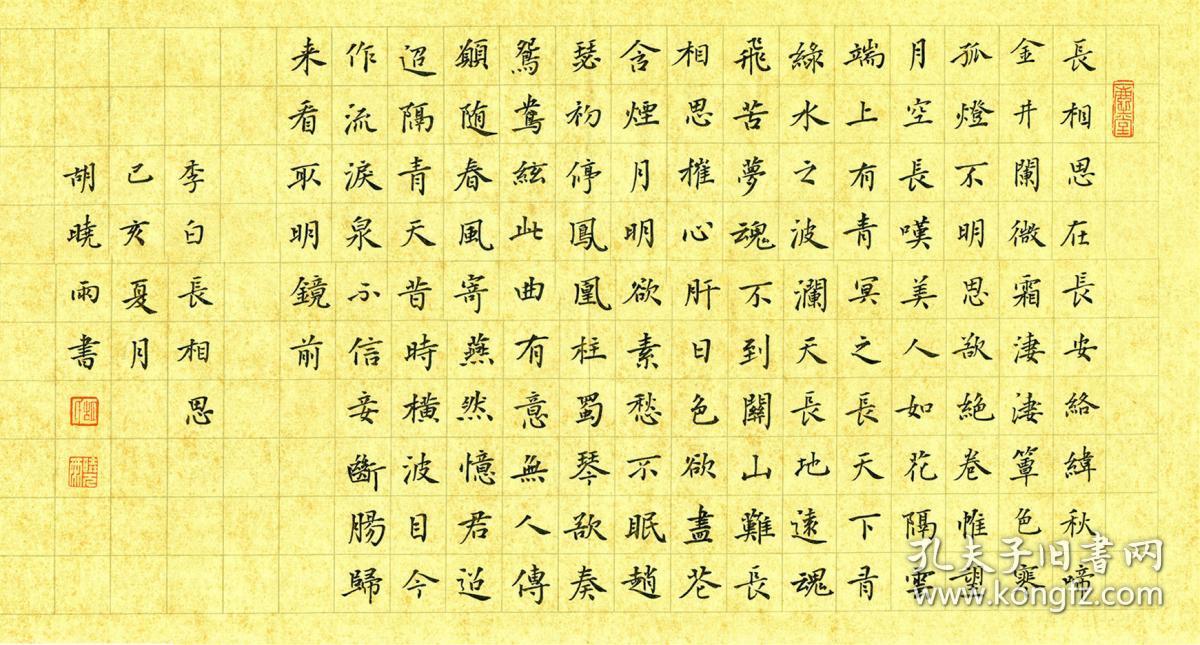 長相思在長安絡緯秋啼
金井闌微霜淒淒簟色寒
孤燈不明思欲絶卷帷望
月空長嘆美人如花隔雲
端上有青冥之長天下有
綠水之波瀾天長地遠魂
飛苦夢魂不到關山難長
相思摧心肝日色欲盡花
含煙月明欲素愁不眠趙
瑟初停鳳凰柱蜀琴欲奏
鴛鴦絃此曲有意無人傳
願随春風寄燕然憶君迢
迢隔青天昔時橫波目今
作流淚泉不信妾斷腸歸
来看取明鏡前
李白長相思
己亥夏月
胡曉雨書
孔夫子旧书网
www.kongfz.com